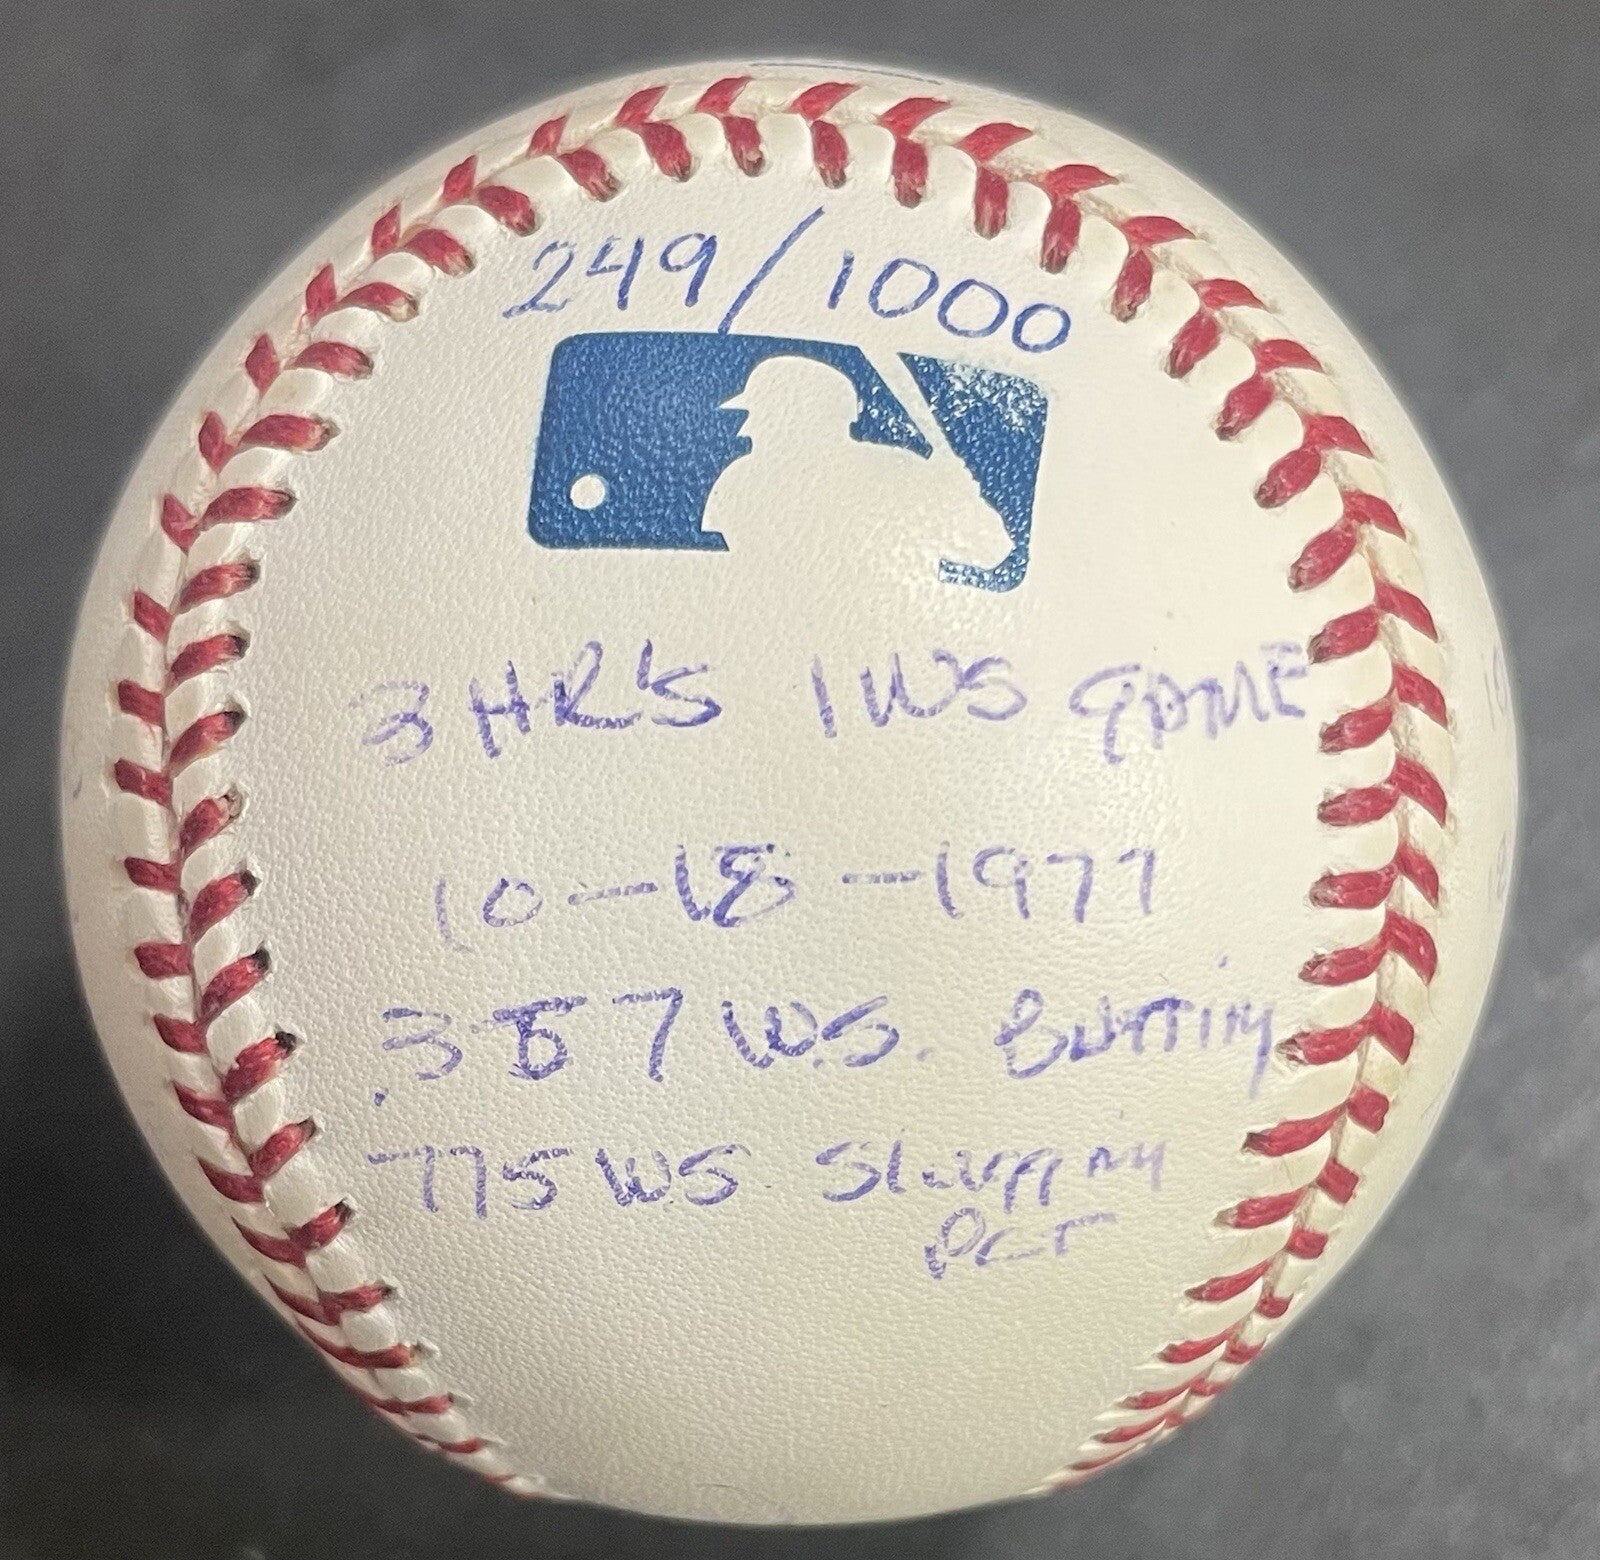 249/1000
3 HR'S 1 WS GAME
10-18-1977
.357 W.S. Batting
.775 WS Slugging
PCT